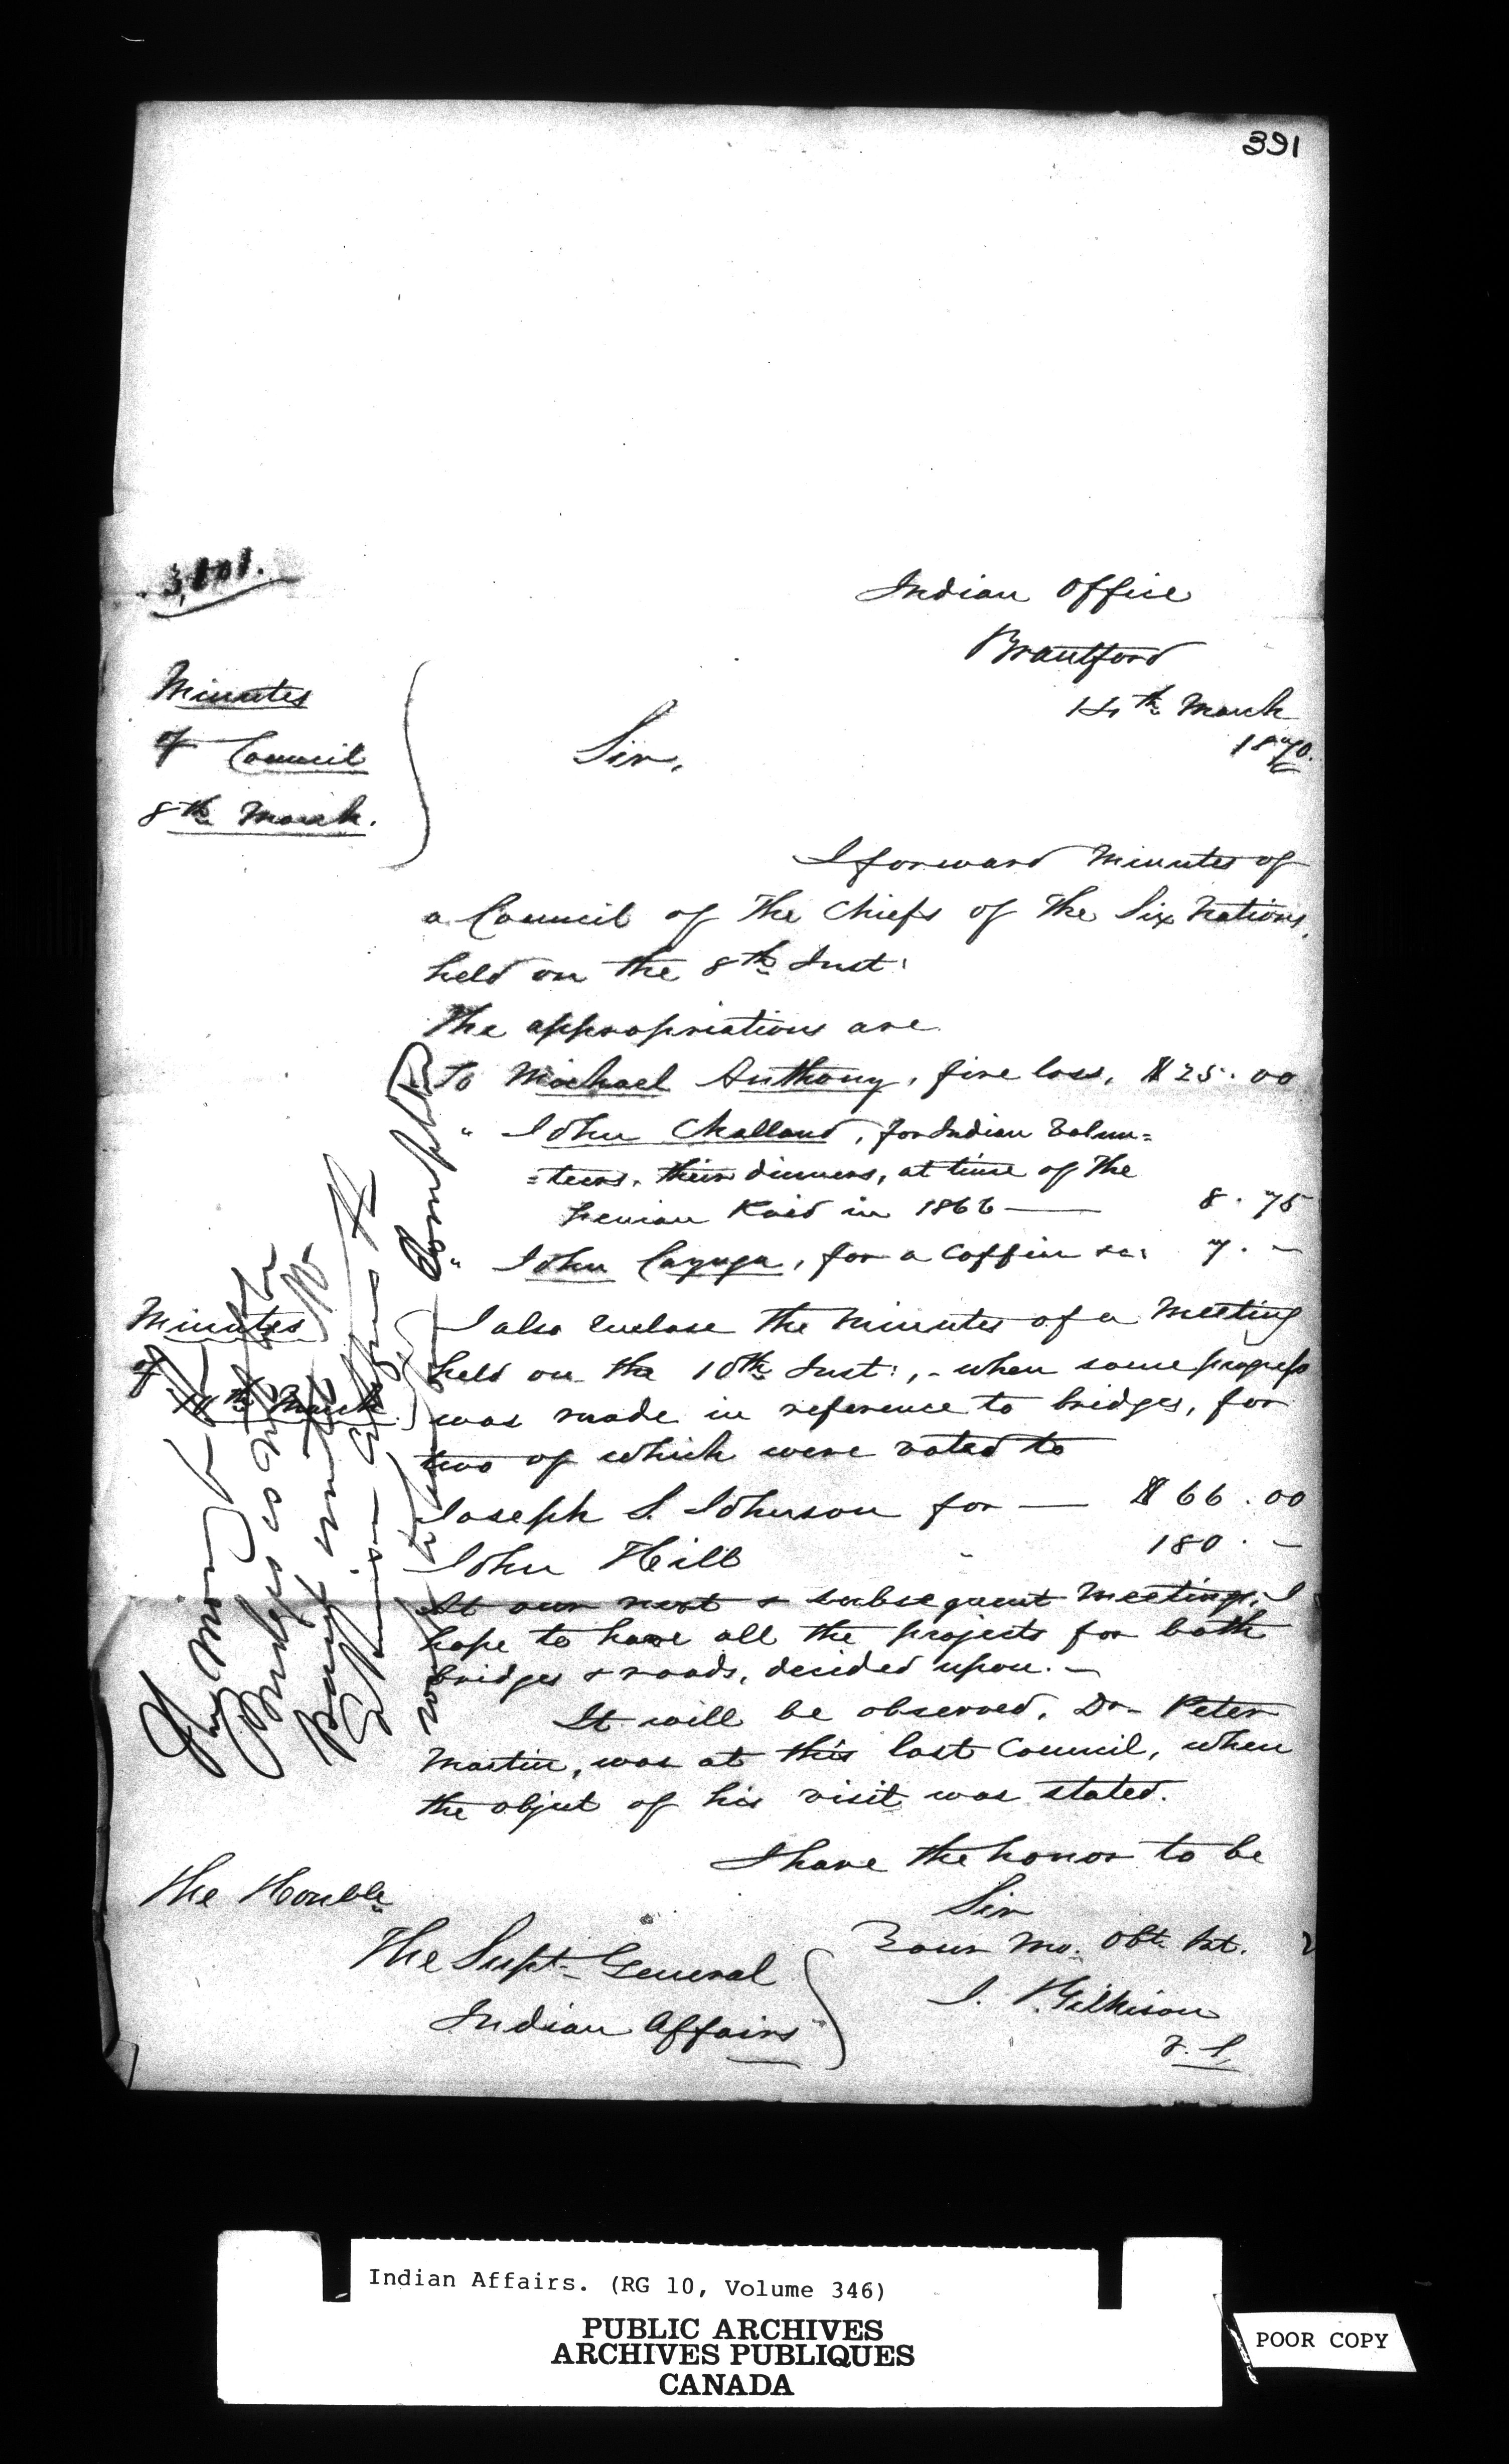 391
Indian Office
Brantford
14th March
1870.
Minutes
of Council
8th March.
Sir,
I forward Minutes of
a Council of the Chiefs of the Six Nations,
held on the 8th Inst:
The appropriations are
To Michael Anthony, fire loss, $25.00
" John Challand, for Indian Volun=
=teers, their dinners, at time of the
Fenian Raid in 1866 — 8.75
" John Cayuga, for a coffin &c: 7. –
Minutes
of
10th March
I also enclose the minutes of a Meeting
held on the 10th Inst:, - when some progress
was made in reference to bridges, for
two of which were voted to
Joseph S. Johnson for — $66.00
John Hill " 180. –
At our next & subsequent meetings, I
hope to have all the projects for both
bridges & roads, decided upon. –
It will be observed, Dr. Peter
Martin, was at this last Council, when
the object of his visit was stated.
I have the honor to be
Sir
Your Mo. Obt. Svt.
J. Gilkison
V. S.
The Honble
The Supt. General
Indian Affairs
The money
Bridges is
Indian Affairs. (RG 10, Volume 346)
PUBLIC ARCHIVES
ARCHIVES PUBLIQUES
CANADA
POOR COPY